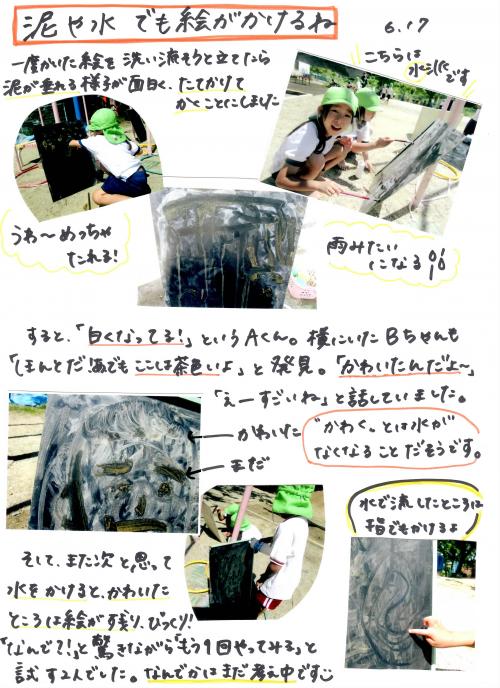 泥や水 でも絵がかけるね
6.17
一度かいた絵を洗い流そうと立てたら
泥が垂れる様子が面白く、たてかけて
かくことにしました
こちらは
水だけです
うわ〜めっちゃ
たれる!
雨みたい
になる
すると、「白くなってる!」というAくん。横にいたBちゃんも
「ほんとだ!あでもここは茶色いよ」と発見。「かわいたんだよ〜」
「えーすごいね」と話していました。
かわいた
まだ
"かわく"とは水が
なくなることだそうです。
水で流したところは
指でもかけるよ
そして、また次と思って
水をかけると、かわいた
ところは絵が残り、びっくり!
「なんで?!」と驚きながら「もう1回やってみる」と
試す2人でした。なんでかはまだ考え中です